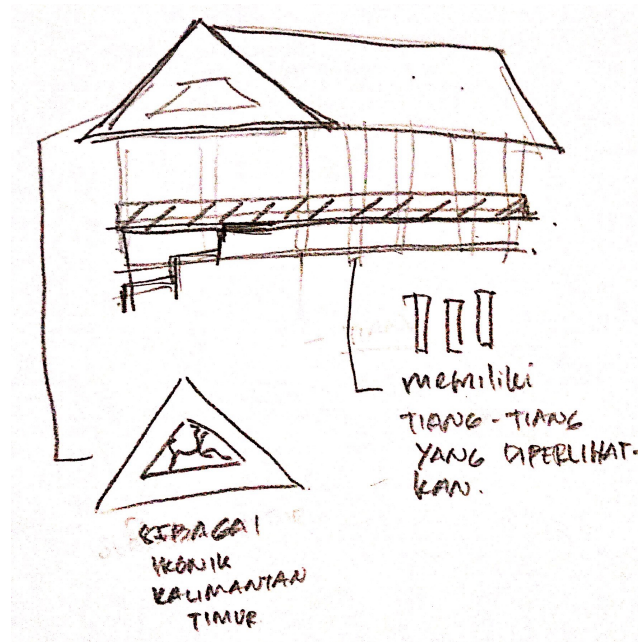 memiliki
TIANG-TIANG
YANG DIPERLIHAT-
KAN.
SEBAGAI
IKONIK
KALIMANTAN
TIMUR